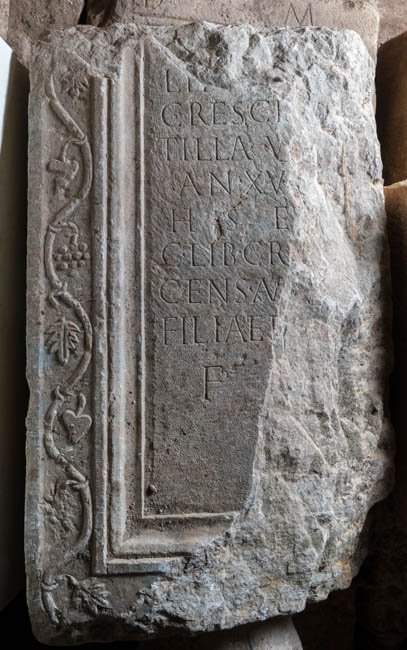 CRESCE
TILLA V
AN XV
H S E
C·LIB CR
CENSAV
FILIAE
F